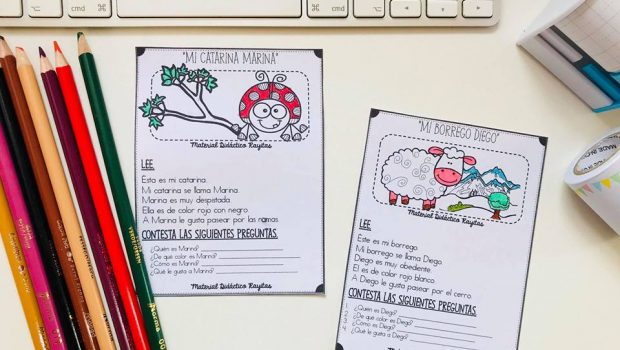 control
option
⌘ cmd
⌘ cmd
"MI CATARINA MARINA"
Material Didáctico Rayitas
LEE.
Esta es mi catarina.
Mi catarina se llama Marina.
Marina es muy despistada.
Ella es de color rojo con negro.
A Marina le gusta pasear por las ramas.
CONTESTA LAS SIGUIENTES PREGUNTAS.
¿Quién es Marina?
¿De qué color es Marina?
¿Cómo es Marina?
¿Qué le gusta a Marina?
Material Didáctico Rayitas
"MI BORREGO DIEGO"
Material Didáctico Rayitas
LEE.
Este es mi borrego.
Mi borrego se llama Diego.
Diego es muy obediente.
El es de color rojo blanco.
A Diego le gusta pasear por el cerro.
CONTESTA LAS SIGUIENTES PREGUNTAS.
1 ¿Quién es Diego?
2 ¿De qué color es Diego?
3 ¿Cómo es Diego?
4 ¿Qué le gusta a Diego?
MADE IN